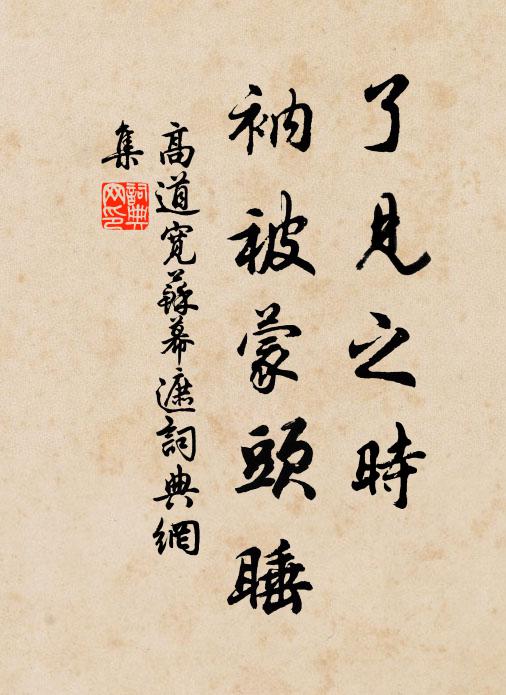 了見之時
衲被蒙頭睡
高道寬蘇幕遮詞典網
集
詞典
网印